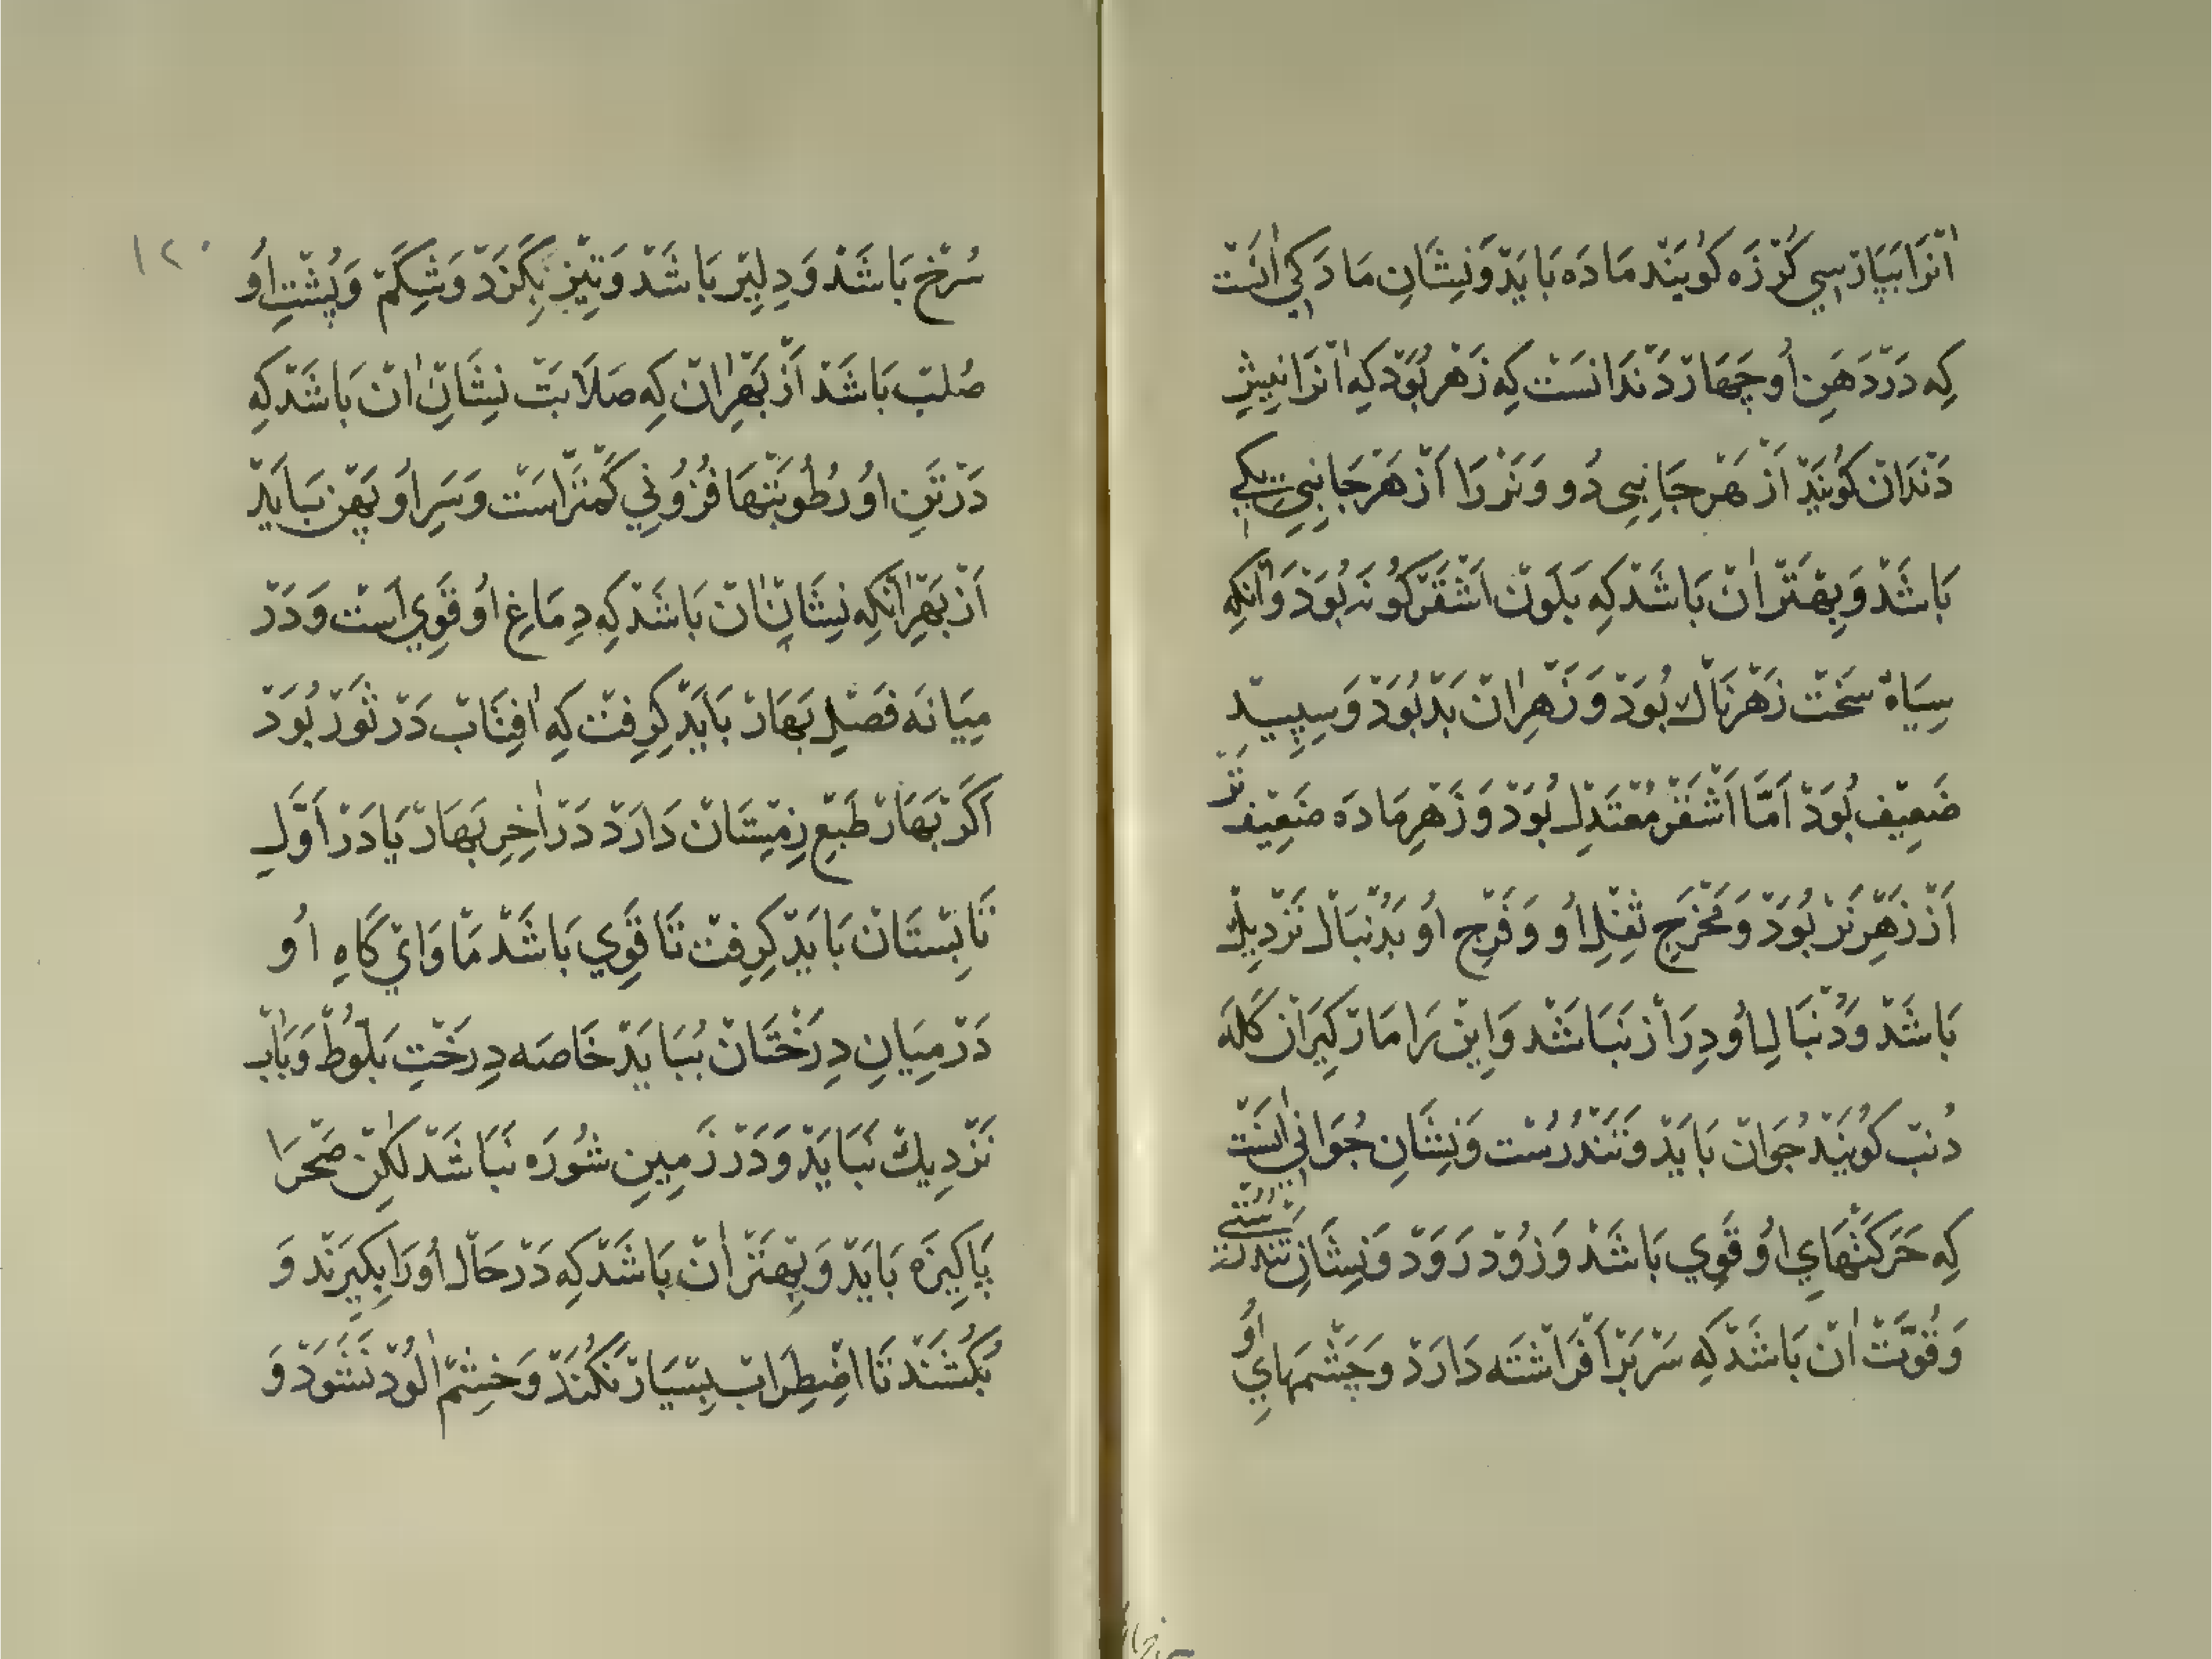 آنْرَا بَپَارْسِي كُرْزَه كُويَنْد مَادَه بَايَدْ وَنِشَانِ مَادَكِي آنَسْت
كِه دَرْدَهَنِ اُو چَهَارْ دَنْدَانَسْت كِه زَهْر بُوَدْ كِه آنْرَا نِيشِ
دَنْدَانْ كُويَنْد اَزْ هَرْجَانِبِى دُو وَنَرْ رَا اَزْ هَرْجَانِبِي يَكِي
بَاشَدْ وَبِهْتَرْ آنْ بَاشَدْ كِه بَلَوْن اَشْقَرْ كُونَه بُوَدْ وَآنْكِه
سِيَاهْ سَخْت زَهْرْنَاكْ بُوَدْ وَزَهْرِ آنْ بَدْ بُوَدْ وَسِپِيدْ
ضَعِيْف بُوَدْ اَمَّا اَشْقَرْ مُعْتَدِلْ بُوَدْ وَزَهْرِ مَادَه ضَعِيْف تَرْ
اَزْ زَهْرِ نَرْ بُوَدْ وَمَخْرَجِ ثفْلِ اُو وَفَرْجِ اُو بَدُنْبَالْ نَزْدِيكْ
بَاشَدْ وَدُنْبَالِ اُو دِرَازْ نَبَاشَدْ وَاِيْن رَا مَارْ كِيرَان كَلَه
دُنْبْ كُويَنْدْ جُوَانْ بَايَدْ وَتَنْدُرُسْت وَنِشَانِ جُوَانِي آنَسْتْ
كِه حَرَكَتْهَايِ اُو قَوِي بَاشَدْ وَزُودْ رَوَدْ وَنِشَانِ تَنْدُرُسْتِي
وَقُوَّتْ آنْ بَاشَدْ كِه سَرْ بَرْاَفْرَاشْتَه دَارَدْ وَچَشْمهَايِ اُو
١٢٠
سُرْخ بَاشَدْ وَدِلِيْر بَاشَدْ وَتِيْز بِكَزَدْ وَشِكَمْ وَپُشْتِ اُو
صُلبْ بَاشَدْ اَزْ بَهْرِ آنْ كِه صَلَابَتْ نِشَانِ آنْ بَاشَدْ كِه
دَرْ تَنِ اُو رُطُوبَتْهَا فُزُوْنِي كَمْتَرَاسْت وَسَرِ اُو پَهْن بَايَدْ
اَزْ بَهْرِ آنْكِه نِشَانِ آنْ بَاشَدْ كِه دِمَاغِ اُو قَوِي اَسْت وَدَرْ
مِيَانَه فَصْلِ بَهَارْ بَايَدْ كِرِفْتْ كِه آفِتَابْ دَرْ ثَوْرْ بُوَدْ
اَكَرْ بَهَارْ طَبْعِ زِمِسْتَانْ دَارَدْ دَرْ آخِرِ بَهَارْ يَا دَرْ اَوَّلِ
تَابِسْتَانْ بَايَدْ كِرِفْتْ تَا قَوِي بَاشَدْ مَاوَايْ كَاهِ اُو
دَرْ مِيَانِ دِرَخْتَانْ نَبَايَدْ خَاصَه دِرَخْتِ بَلُّوطْ وَبَآبْ
نَزْدِيكْ نَبَايَدْ وَدَرْ زَمِينِ شُورَه نَبَاشَدْ لٰكِنْ صَحْرَا
پَاكِيزَه بَايَدْ وَبِهْتَرْ آنْ بَاشَدْ كِه دَرْحَالْ اُورَا بِكِيرَنْد وَ
بُكُشَنْد تَا اضْطِرَابْ بِسْيَارْ نَكُنَدْ وَخِشْمْ آلُودْ نَشَوَدْ وَ